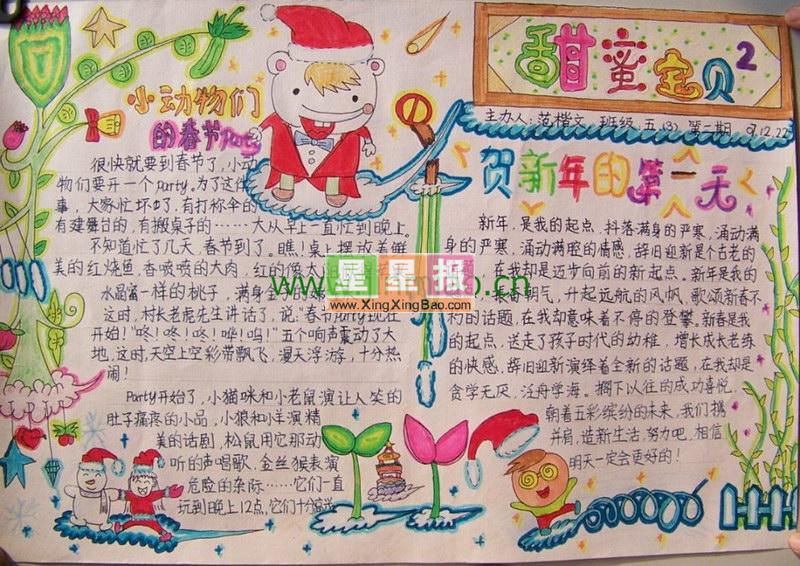 甜蜜宝贝2
主办人:范楷文 班级 五(3) 第二期 09.12.22
小动物们
的春节Party
很快就要到春节了,小动
物们要开一个party。为了这件
事,大家忙坏了,有打杂伞的
有建舞台的,有搬桌子的……大从早上一直忙到晚上。
不知道忙了几天,春节到了。瞧!桌上摆放着鲜
美的红烧鱼,香喷喷的大肉,红的像大
水晶富一样的桃子,满身金
这时,村长老虎先生讲话了,说:“春节Party现在
开始!”“咚!咚!咚!哗!呜!”五个响声震动了大
地,这时,天空上空彩带飘飞,漫天浮游,十分热
闹!
Party开始了,小猫咪和小老鼠演让人笑的
肚子痛疼的小品,小狼和小羊演精
美的话剧,松鼠用它那动
听的声唱歌,金丝猴表演
危险的杂际……它们一直
玩到晚上12点,它们十分高兴
贺新年的第一天
新年,是我的起点,抖落满身的严寒,涌动满
身的严寒,涌动满腔的情感,辞旧迎新是个古老的
话题,在我却是迈步向前的新起点。新年是我的
振奋朝气,升起远航的风帆,歌颂新春不
朽的话题,在我却意味着不停的登攀。新春是我
的起点,送走了孩子时代的幼稚,增长成长老练
的快感,辞旧迎新演绎着全新的话题,在我却是
贪学无厌,泛舟学海。搁下以往的成功喜悦,
朝着五彩缤纷的未来,我们携
并肩,谱新生活,努力吧,相信
明天一定会更好的!
星星报
www.XingXingBao.com
.cn